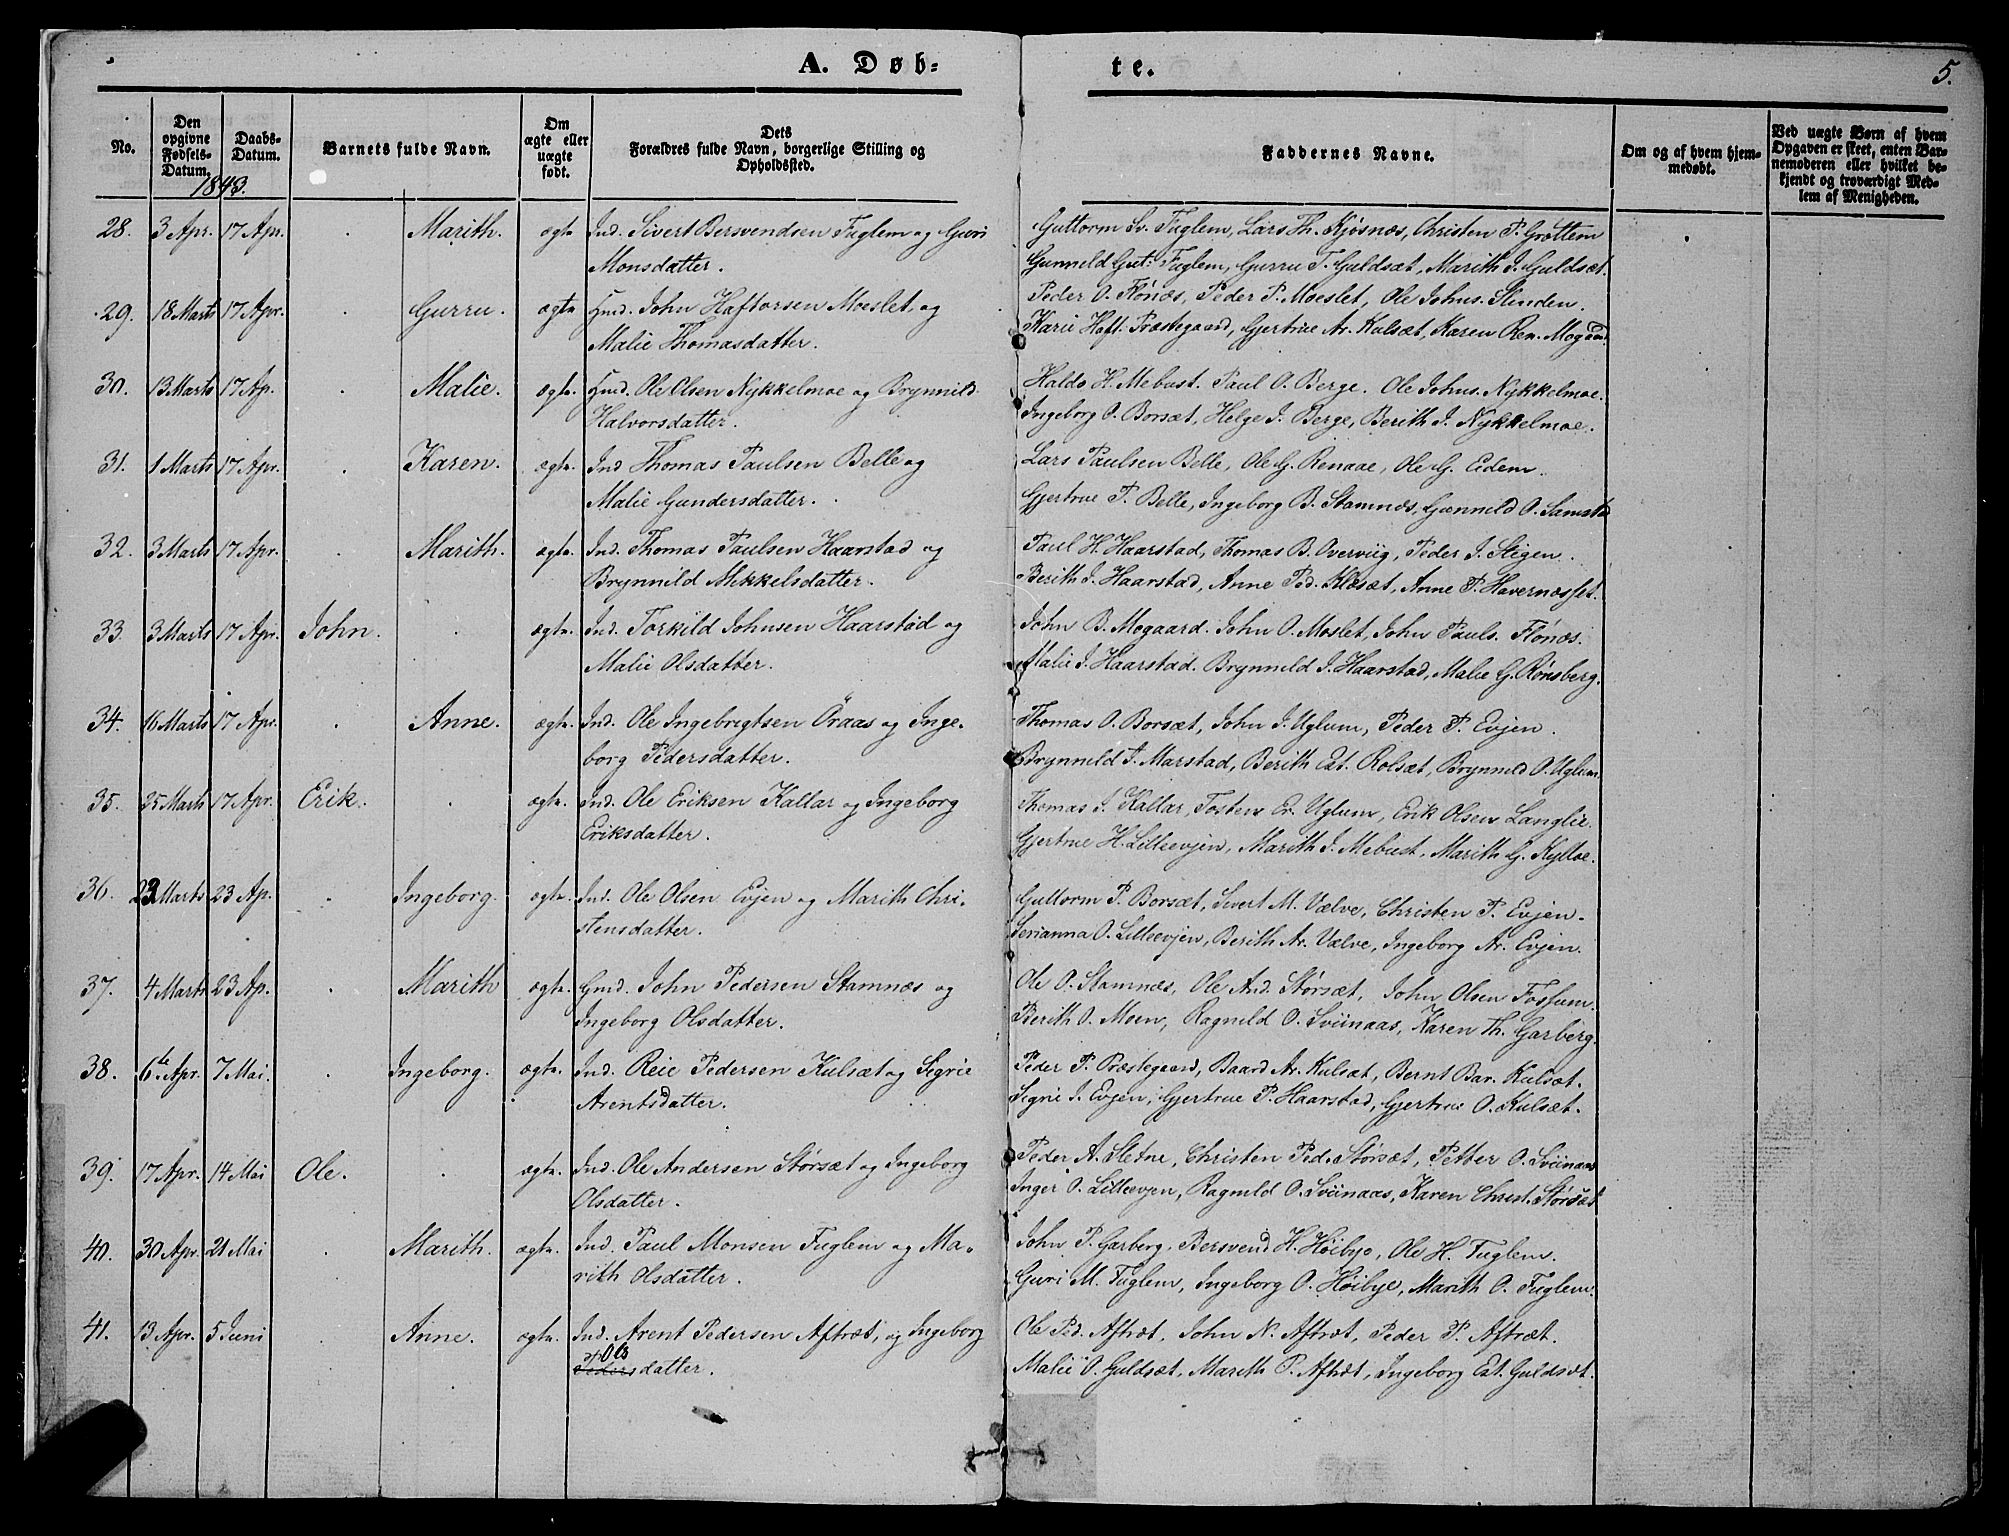 A. Døb-
te.
5.
No.
Den opgivne Fødsels-Datum.
Daabs-Datum.
Barnets fulde Navn.
Om ægte eller uægte født.
Dets Forældres fulde Navn, borgerlige Stilling og Opholdssted.
Faddernes Navne.
Om og af hvem hjemmedøbt.
Ved uægte Børn af hvem Opgaven er skeet, enten Barnemoderen eller hvilket bekjendt og troværdigt Medlem af Menigheden.
1843.
28. 3 Apr. 17 Apr. Marith. ægte Ind. Sivert Bersvendsen Fuglem og Guri
Monsdatter.
Guttorm Sv. Fuglem, Lars Th. Kjøsnæs, Christen P. Grøttem
Gunnild Gut. Fuglem, Gurru T. Guldsæt, Marith J. Guldsæt.
29. 18 Marts 17 Apr. Gurru. ægte Hmd. John Haftorsen Moeslet og
Malie Thomasdatter.
Peder O. Flónæs, Peder P. Moeslet, Ole Johns. Slinden.
Karie Haft. Præstegaard, Gjertrue Ar. Kulsæt, Karen Ren. Mogaard
30. 13 Marts 17 Ap. Malie. ægte. Hmd. Ole Olsen Nykkelmoe og Brynnild
Halvorsdatter.
Haldo H. Mebust. Paul O. Berge. Ole Johns. Nykkelmoe.
Ingeborg O. Borsæt, Helge J. Berge, Berith J. Nykkelmoe.
31. 1 Marts 17 Apr. Karen. ægte. Ind Thomas Paulsen Belle og
Malie Gundersdatter.
Lars Paulsen Belle, Ole G. Renaae, Ole G. Eidem.
Gjertrue P. Belle, Ingeborg B. Stamnæs, Gunnild O. Samstad
32. 3 Marts 17 Apr. Marith. ægte. Ind. Thomas Paulsen Haarstad og
Brynnild Mikkelsdatter.
Paul H. Haarstad, Thomas B. Overviig, Peder J. Stigen.
Berith J. Haarstad, Anne Ped. Klæsæt, Anne P. Havernæsset.
33. 3 Marts 17 Apr. John. ægte. Ind. Torkild Johnsen Haarstad og
Malie Olsdatter.
John B. Mogaard. John O. Moslet, John Pauls. Flónæs.
Malie J. Haarstad. Brynnild J. Haarstad, Malie G. Rønsberg.
34. 16 Marts 17 Apr. Anne. ægte. Ind. Ole Ingebrigtsen Öraas og Inge-
borg Pedersdatter.
Thomas O. Borsæt, John J. Uglum, Peder P. Evjen.
Brynnild T. Marstad, Berith Est. Rolsæt, Brynnild O. Uglum.
35. 25 Marts 17 Apr. Erik. ægte. Ind. Ole Eriksen Kallar og Ingeborg
Eriksdatter.
Thomas J. Kallar, Tosten Er. Uglum, Erik Olsen Langlie.
Gjertrue H. Lilleevjen, Marith J. Mebust, Marith G. Kylloe.
36. 23 Marts 23 Ap. Ingeborg. ægte. Ind. Ole Olsen Evjen og Marith Chri-
stensdatter.
Guttorm P. Borsæt, Sivert M. Vælve, Christen P. Evjen.
Serianna O. Lilleevjen, Berith Ar. Vælve, Ingeborg Ar. Evjen.
37. 4 Marts 23 Ap. Marith ægte. Gmd. John Pedersen Stamnæs og
Ingeborg Olsdatter.
Ole O. Stamnæs, Ole And. Størsæt, John Olsen Fosfum.
Berith O. Moen, Ragnild O. Sviinaas, Karen Th. Garberg.
38. 6te Apr. 7 Mai. Ingeborg. ægte. Ind. Reie Pedersen Kulsæt og Sigrie
Arentsdatter.
Peder P. Præstegaard, Baard Ar. Kulsæt, Bernt Bar. Kulsæt.
Sigrie J. Evjen, Gjertrue P. Haarstad, Gjertrue O. Kulsæt.
39. 17 Apr. 14 Mai Ole. ægte. Ind. Ole Andersen Størsæt og Ingeborg
Olsdatter.
Peder A. Sletne, Christen Ped. Størsæt, Petter O. Sviinaas
Inger O. Lilleevjen, Ragnild O. Sviinaas, Karen Christ. Størsæt
40. 30 Apr. 21 Mai Marith. ægte. Ind. Paul Monsen Fuglem og Ma-
rith Olsdatter.
John P. Garberg, Bersvend H. Høibye, Ole H. Fuglem.
Guri M. Fuglem, Ingeborg O. Høibye, Marith O. Fuglem.
41. 13 Apr. 5 Juni Anne. ægte. Ind. Arent Pedersen Aftræt, og Ingeborg
Olsdatter.
Ole Ped. Aftræt, John N. Aftræt, Peder P. Aftræt.
Malie O. Guldsæt, Marith P. Aftræt, Ingeborg Est. Guldsæt.